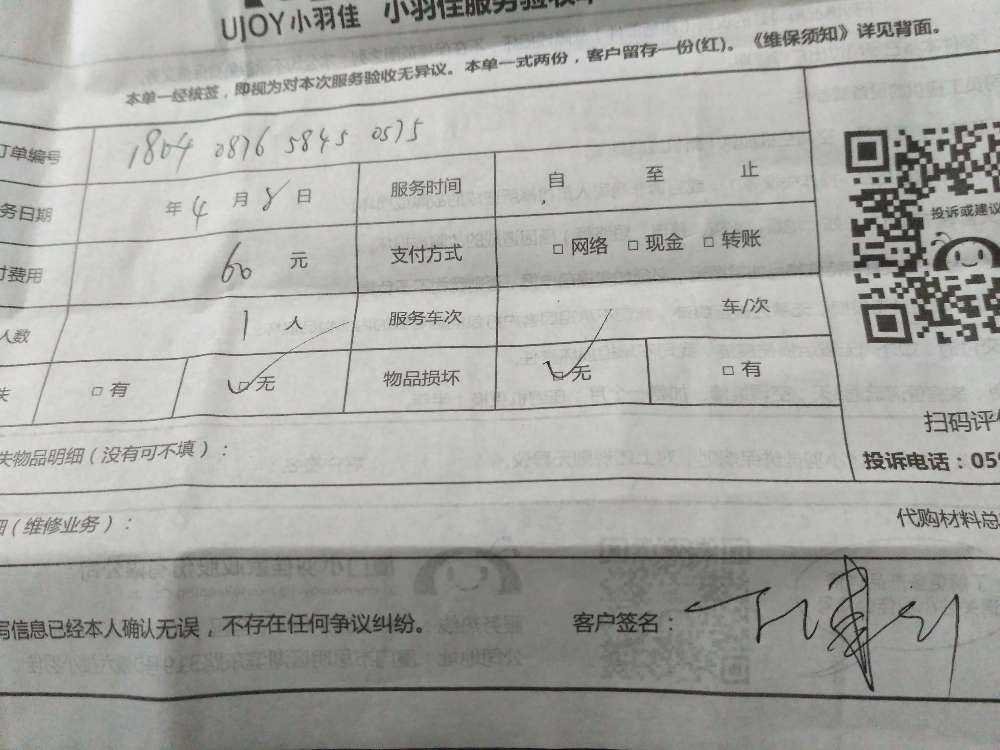 UJOY小羽佳 小羽佳服务验收单
本单一经核签，即视为对本次服务验收无异议。本单一式两份，客户留存一份(红)。《维保须知》详见背面。
订单编号 1804 0876 5845 0575
务日期 年 4 月 8 日 服务时间 自 至 止
付费用 60 元 支付方式 □ 网络 □ 现金 □ 转账
人数 1 人 服务车次 车/次
失 □ 有 □ 无 物品损坏 □ 无 □ 有
投诉或建议
扫码评价
失物品明细（没有可不填）：
投诉电话：059
细（维修业务）：
代购材料总
写信息已经本人确认无误，不存在任何争议纠纷。 客户签名：